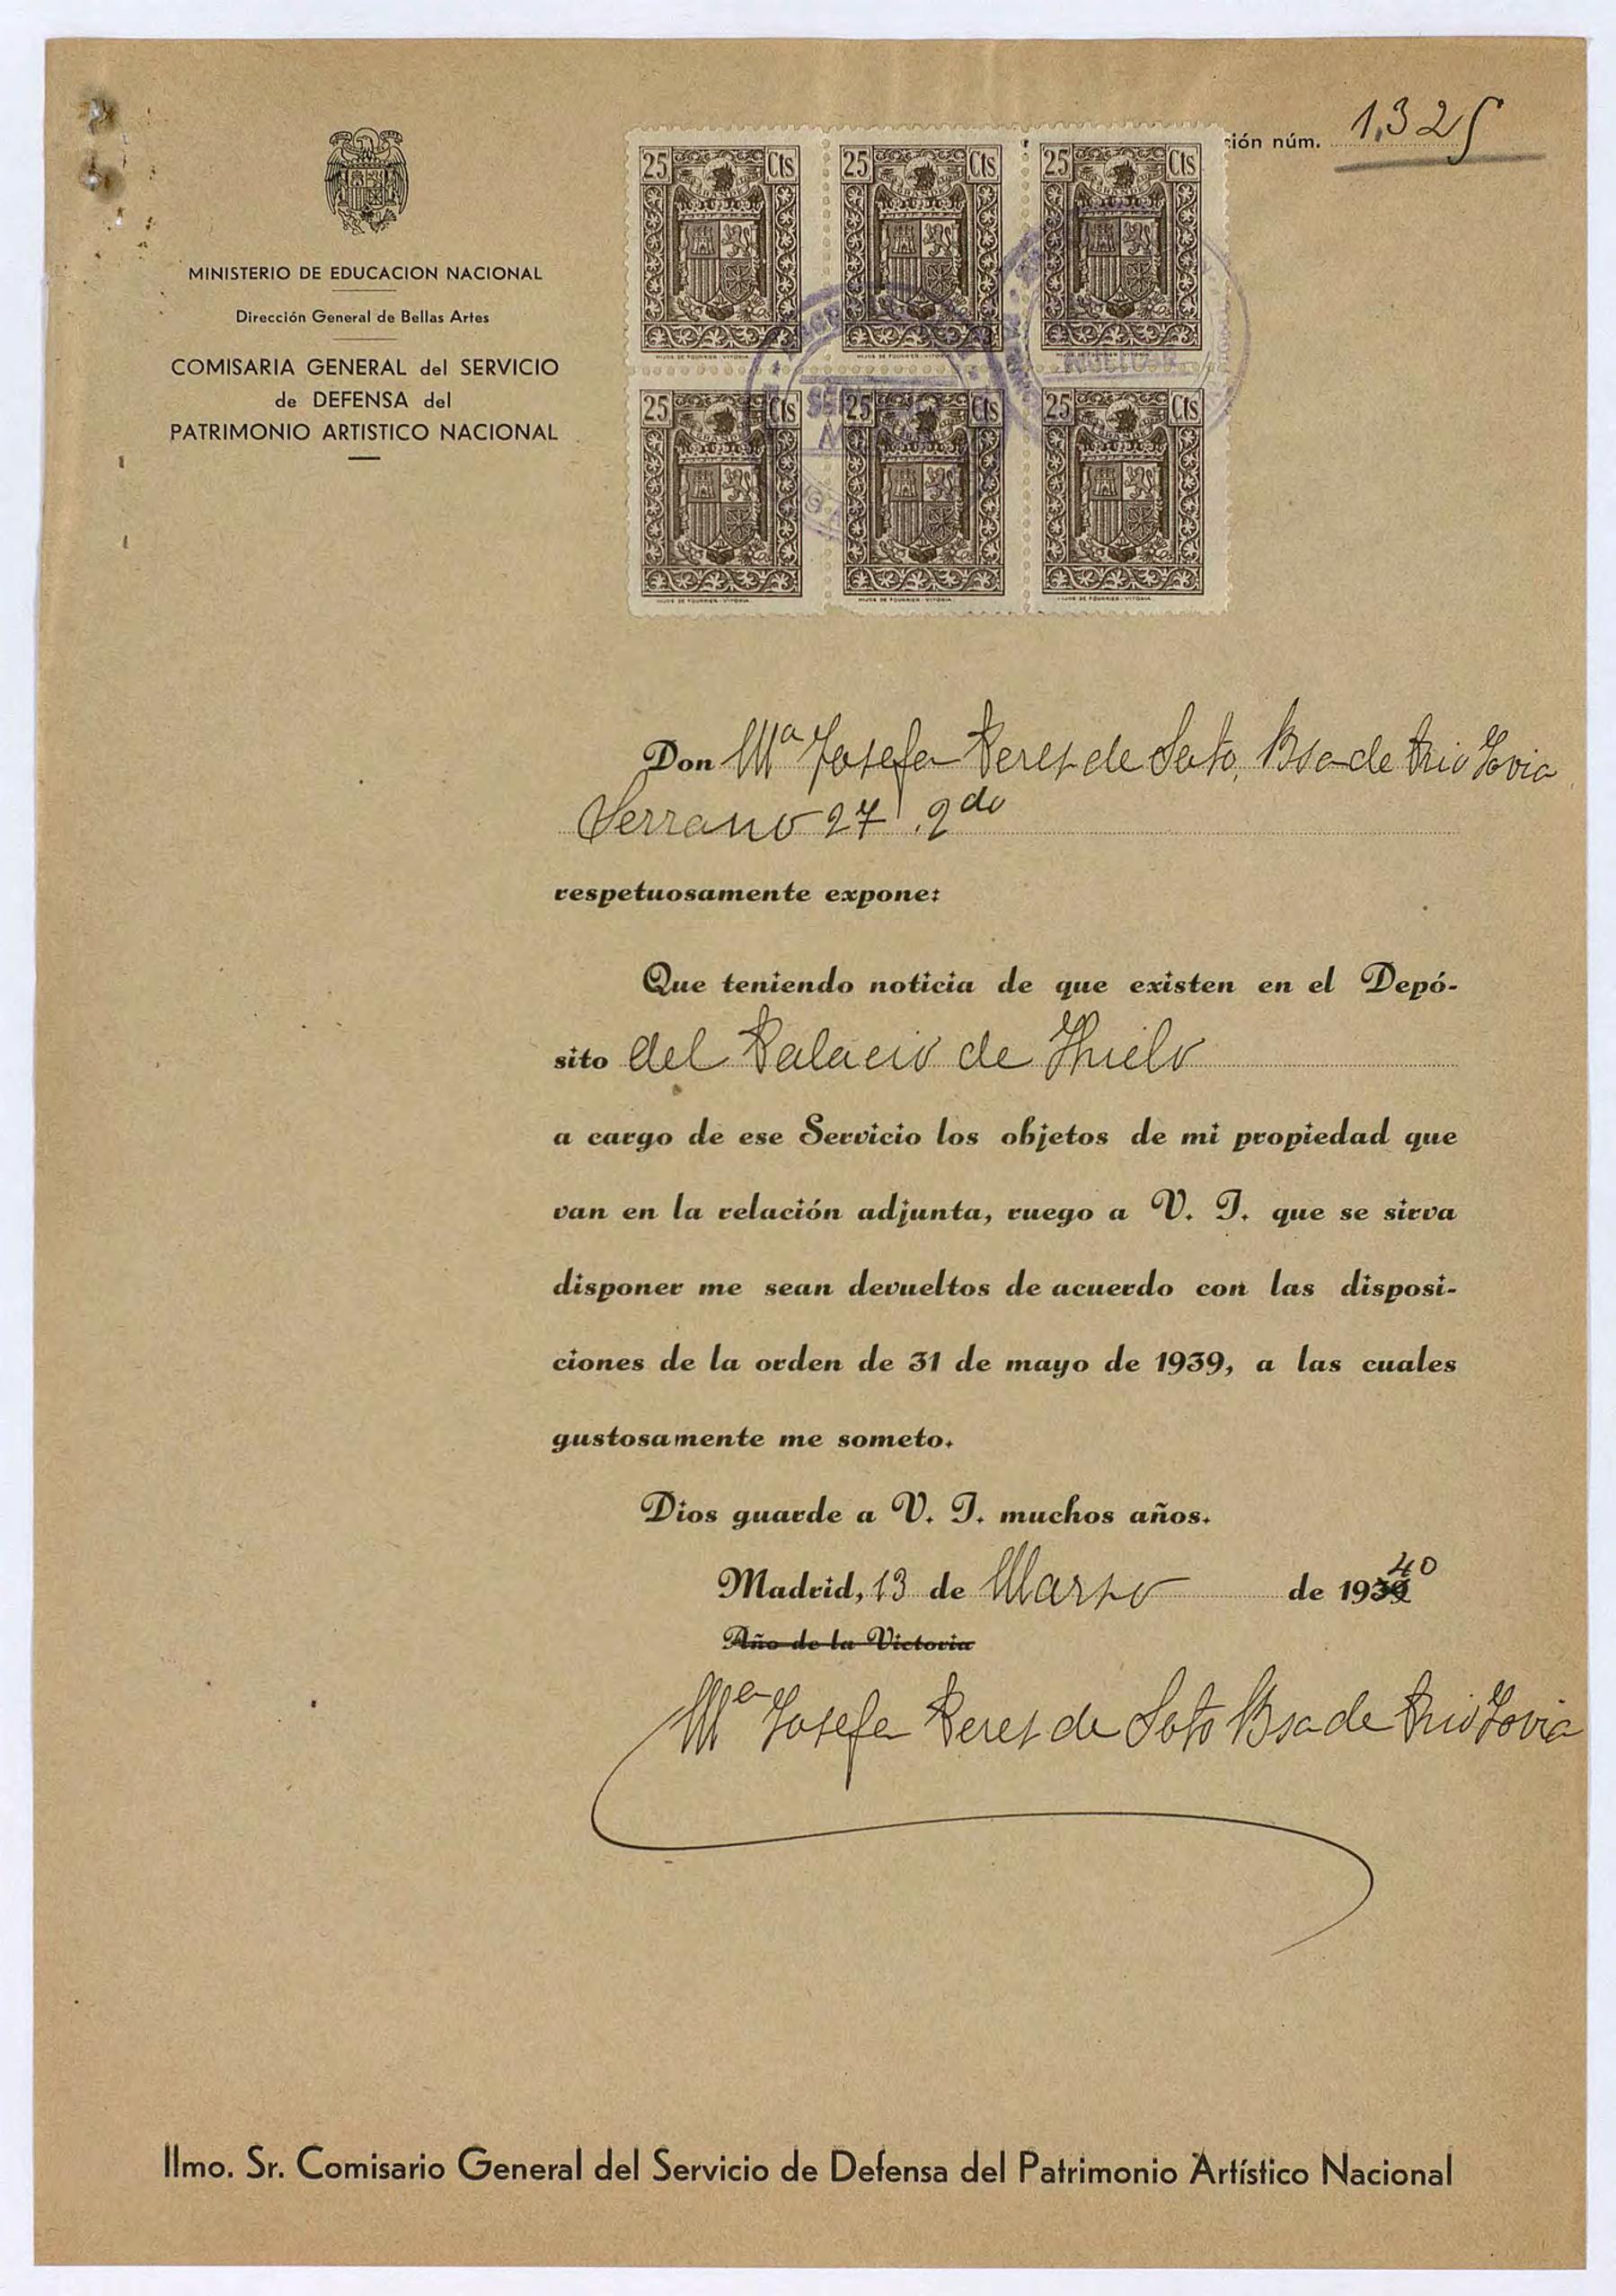 ción núm. 1.325
MINISTERIO DE EDUCACION NACIONAL
Dirección General de Bellas Artes
COMISARIA GENERAL del SERVICIO
de DEFENSA del
PATRIMONIO ARTISTICO NACIONAL
25 Cts 25 Cts 25 Cts
HIJOS DE FOURNIER - VITORIA HIJOS DE FOURNIER - VITORIA HIJOS DE FOURNIER - VITORIA
25 Cts 25 Cts 25 Cts
HIJOS DE FOURNIER - VITORIA HIJOS DE FOURNIER - VITORIA HIJOS DE FOURNIER - VITORIA
Don Mª Josefa Perez de Soto, Bsa de Rio Tovia
Serrano 27, 2do
respetuosamente expone:
Que teniendo noticia de que existen en el Depó-
sito del Palacio de Hielo
a cargo de ese Servicio los objetos de mi propiedad que
van en la relación adjunta, ruego a V. I. que se sirva
disponer me sean devueltos de acuerdo con las disposi-
ciones de la orden de 31 de mayo de 1939, a las cuales
gustosamente me someto.
Dios guarde a V. I. muchos años.
Madrid, 13 de Marzo de 1939 40
Año de la Victoria
Mª Josefa Perez de Soto Bsa de Rio Tovia
Ilmo. Sr. Comisario General del Servicio de Defensa del Patrimonio Artístico Nacional